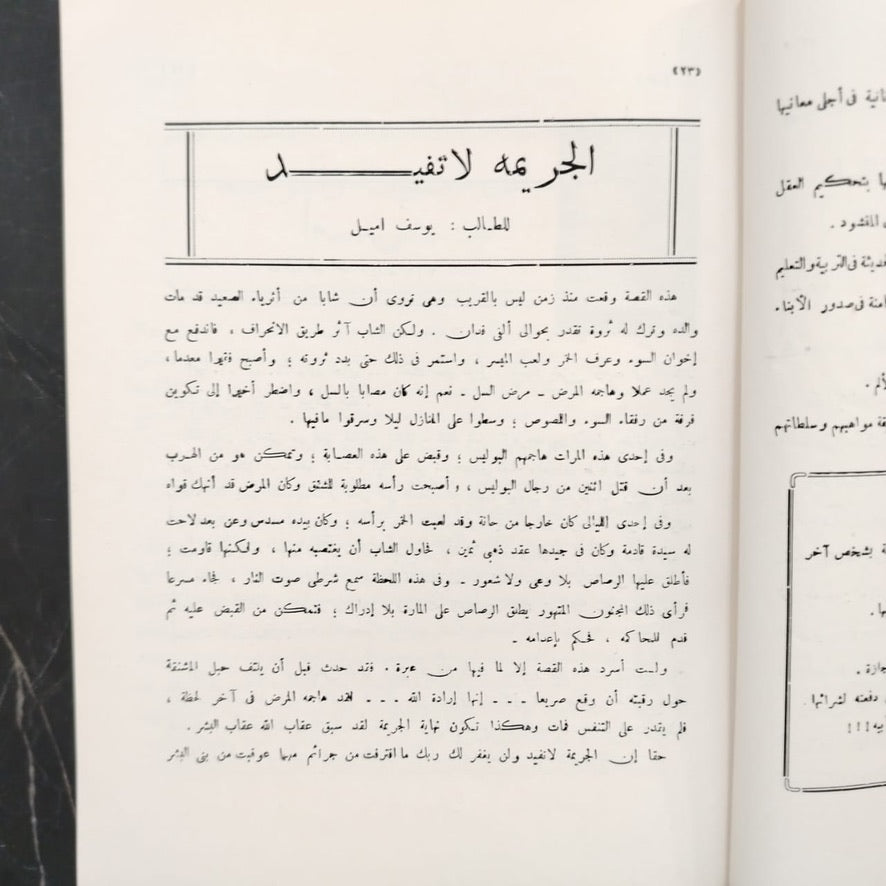 «٢٣»
الجريمه لا تفيد
للطالب : يوسف اميل
هذه القصة وقعت منذ زمن ليس بالقريب وهى تروى أن شابا من أثرياء الصعيد قد مات
والده وترك له ثروة تقدر بحوالى ألفى فدان . ولكن الشاب آثر طريق الانحراف ، فاندفع مع
إخوان السوء وعرف الخمر ولعب الميسر ، واستمر فى ذلك حتى بدد ثروته ؛ وأصبح فقيرا معدما،
ولم يجد عملا وهاجمه المرض - مرض السل - نعم إنه كان مصابا بالسل ، واضطر أخيرا إلى تكوين
فرقة من رفقاء السوء واللصوص ؛ وسطوا على المنازل ليلا وسرقوا مافيها .
وفى إحدى هذه المرات هاجمهم البوليس ؛ وقبض على هذه العصابة ؛ وتمكن هو من الهرب
بعد أن قتل اثنين من رجال البوليس ، وأصبحت رأسه مطلوبة للشنق وكان المرض قد أنهك قواه
وفى إحدى الليالى كان خارجا من حانة وقد لعبت الخمر برأسه ؛ وكان بيده مسدس وعن بعد لاحت
له سيدة قادمة وكان فى جيدها عقد ذهبى ثمين ، فحاول الشاب أن يغتصبه منها ، ولكنها قاومت ؛
فأطلق عليها الرصاص بلا وعى ولا شعور - وفى هذه اللحظة سمع شرطى صوت النار ، فجاء مسرعا
فرأى ذلك المجنون المتهور يطلق الرصاص على المارة بلا إدراك ؛ فتمكن من القبض عليه ثم
قدم للمحاكمه ، فحكم بإعدامه -
ولست أسرد هذه القصة إلا لما فيها من عبرة . فقد حدث قبل أن يلتف حبل المشنقة
حول رقبته أن وقع صريعا - - - إنها إرادة الله - - - لقد هاجمه المرض فى آخر لحظة ،
فلم يقدر على التنفس فمات وهكذا تكون نهاية الجريمة لقد سبق عقاب الله عقاب البشر .
حقا إن الجريمة لاتفيد ولن يغفر لك ربك ما اقترفت من جرائم مهما عوقبت من بنى البشر
فى أجلى معانيها
بتحكيم العقل
المنشود .
فى التربية والتعليم
فى صدور الأبناء
مواهبهم وسلطاتهم
بشخص آخر
دفعته لشرائها .
!!!